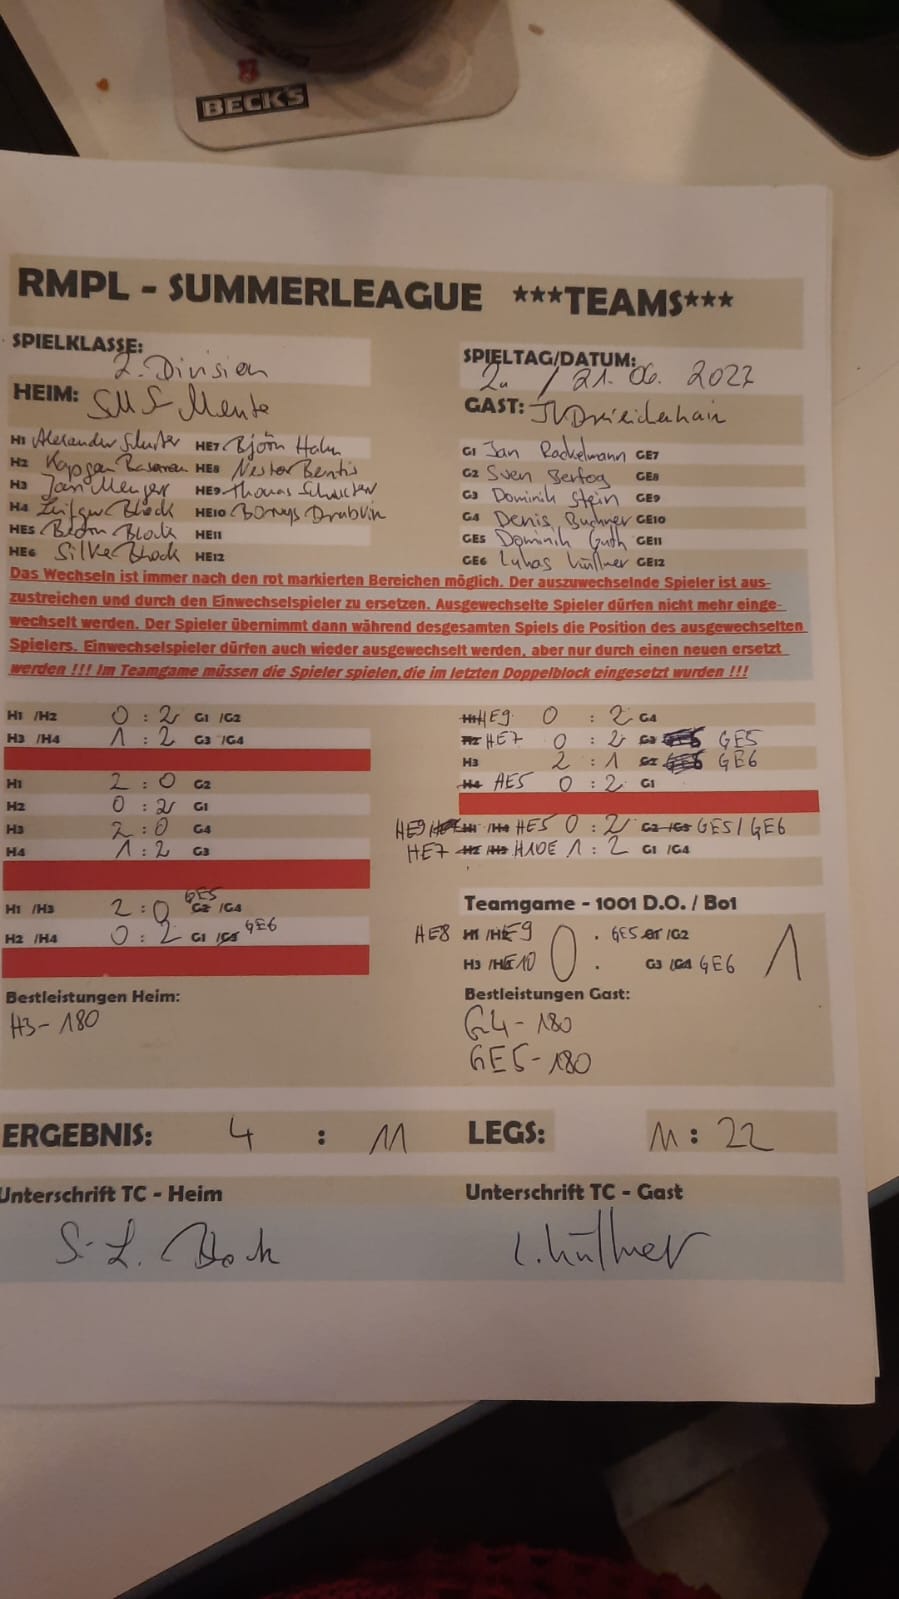 BECK'S
RMPL - SUMMERLEAGUE ***TEAMS***
SPIELKLASSE: 2. Division
SPIELTAG/DATUM: 2. / 21.06. 2022
HEIM:
GAST:
H1 Alexander HE7 Björn Hahn
H2 HE8 Nestor Bentis
H3 Jan Menger HE9 Thomas
H4 Block HE10
HE5 Block HE11
HE6 Silke Block HE12
G1 Jan Rackelmann GE7
G2 Sven Bertog GE8
G3 Dominik Stein GE9
G4 Denis Buchner GE10
GE5 Dominik Guth GE11
GE6 Lukas Küllner GE12
Das Wechseln ist immer nach den rot markierten Bereichen möglich. Der auszuwechselnde Spieler ist aus-
zustreichen und durch den Einwechselspieler zu ersetzen. Ausgewechselte Spieler dürfen nicht mehr einge-
wechselt werden. Der Spieler übernimmt dann während desgesamten Spiels die Position des ausgewechselten
Spielers. Einwechselspieler dürfen auch wieder ausgewechselt werden, aber nur durch einen neuen ersetzt
werden !!! Im Teamgame müssen die Spieler spielen,die im letzten Doppelblock eingesetzt wurden !!!
H1 /H2 0 : 2 G1 /G2
H3 /H4 1 : 2 G3 /G4
H1 2 : 0 G2
H2 0 : 2 G1
H3 2 : 0 G4
H4 1 : 2 G3
H1 /H3 2 : 0 GE5 G2 /G4
H2 /H4 0 : 2 G1 /G3 GE6
H1 HE9 0 : 2 G4
H2 HE7 0 : 2 G3 GE5
H3 2 : 1 G2 GE6
H4 HE5 0 : 2 G1
HE9/ H1 /H4 HE5 0 : 2 G2 /G3 GE5/GE6
HE7 H2 /H3 H10E 1 : 2 G1 /G4
Teamgame - 1001 D.O. / Bo1
HE8 H1 /HE9 0 : 1 GE5 /G2
H3 /HE10 G3 /G4 GE6
Bestleistungen Heim:
H3 - 180
Bestleistungen Gast:
G4 - 180
GE5 - 180
ERGEBNIS: 4 : 11 LEGS: 11 : 22
Unterschrift TC - Heim
S. L. Block
Unterschrift TC - Gast
L. Küllner